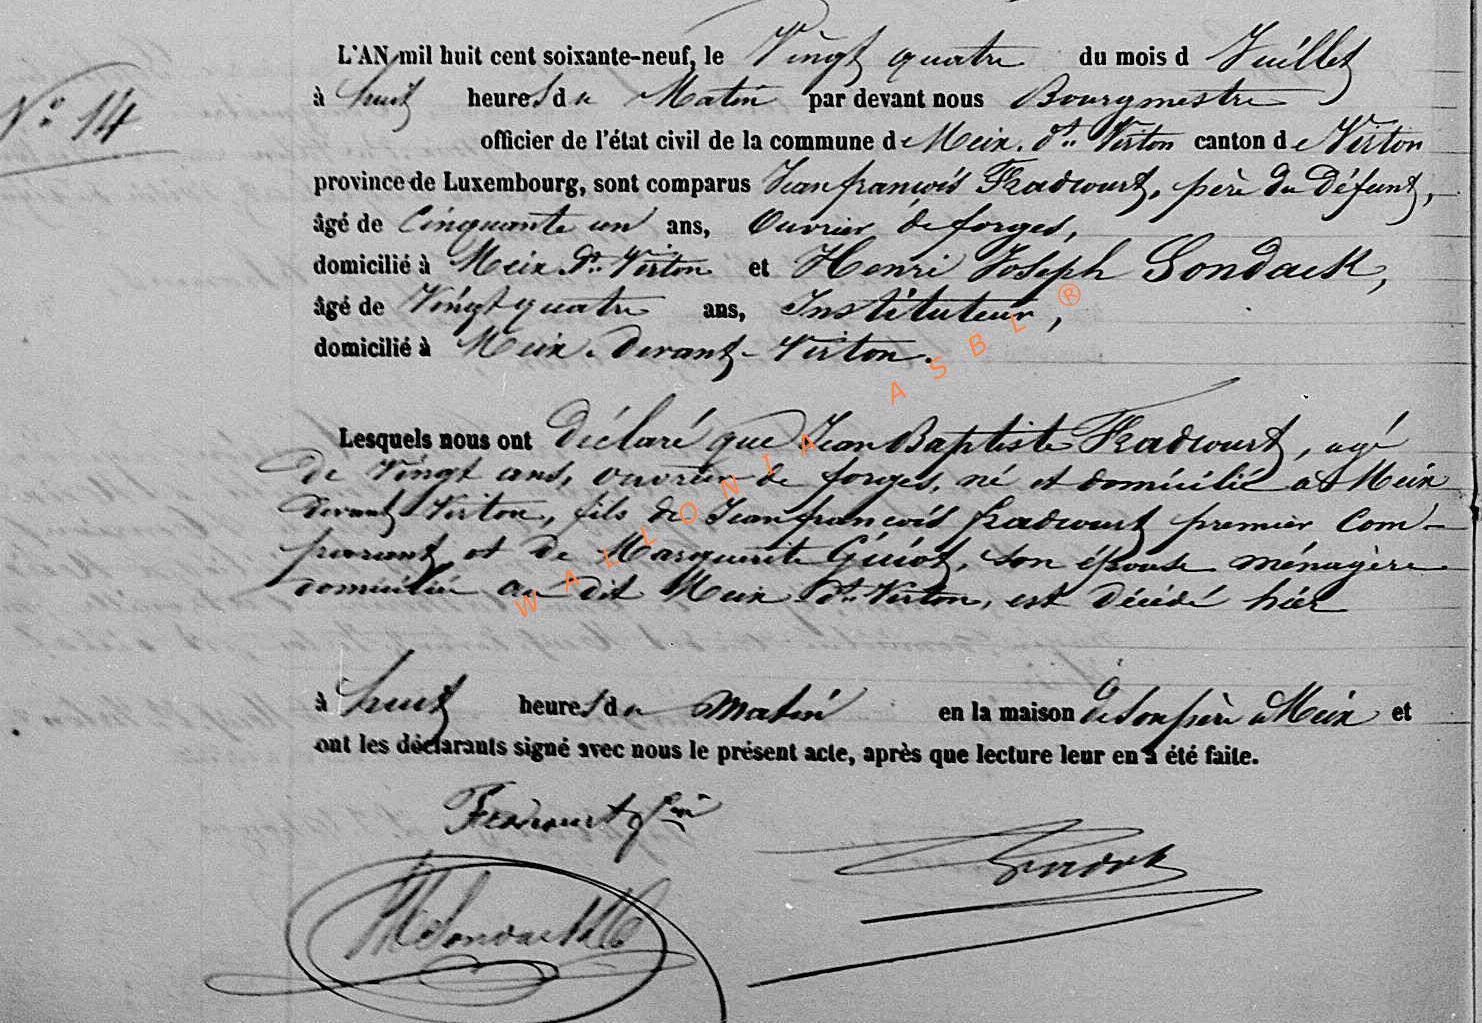 N° 14
L'AN mil huit cent soixante-neuf, le Vingt quatre du mois d Juillet
à huit heures du Matin par devant nous Bourgmestre
officier de l'état civil de la commune de Meix-dt-Virton canton de Virton
province de Luxembourg, sont comparus Jean françois Fradcourt, père du Défunt,
âgé de Cinquante un ans, Ouvrier de forges,
domicilié à Meix dt Virton et Henri Joseph Gondack,
âgé de Vingt quatre ans, Instituteur,
domicilié à Meix-devant-Virton.
Lesquels nous ont déclaré que Jean Baptiste Fradcourt, agé
de Vingt ans, ouvrier de forges, né et domicilié à Meix
devant Virton, fils de Jean françois fradcourt premier Com-
parant et de Marguerite Guiot, son épouse ménagère
domiciliée au dit Meix dt Virton, est décédé hier
à huit heures du matin en la maison de son père à Meix et
ont les déclarants signé avec nous le présent acte, après que lecture leur en a été faite.
WALLONIA ASBL ®